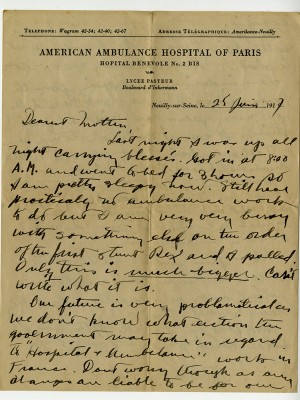 TELEPHONE: Wagram 42-54; 43-40; 43-67
ADRESSE TÉLÉGRAPHIQUE: Amerilance-Neuilly
AMERICAN AMBULANCE HOSPITAL OF PARIS
HOPITAL BENEVOLE No. 2 BIS
LYCÉE PASTEUR
Boulevard d'Inkermann
Neuilly-sur-Seine, le 25 Juin 1917
Dearest Mother
Last night I was up all
night carrying blesses. Got in at 8:00
A.M. and went to bed for 3 hours so
I am pretty sleepy now. Still have
practically no ambulance work
to do but I am very very busy
with something else on the order
of the first stunt Rex and I pulled.
Only this is much bigger. Can't
write what it is.
Our future is very problematical as
we don't know what action the
government may take in regard
to "Hospital & Ambulance" work in
France. Don't worry though as any
changes are liable to be for our